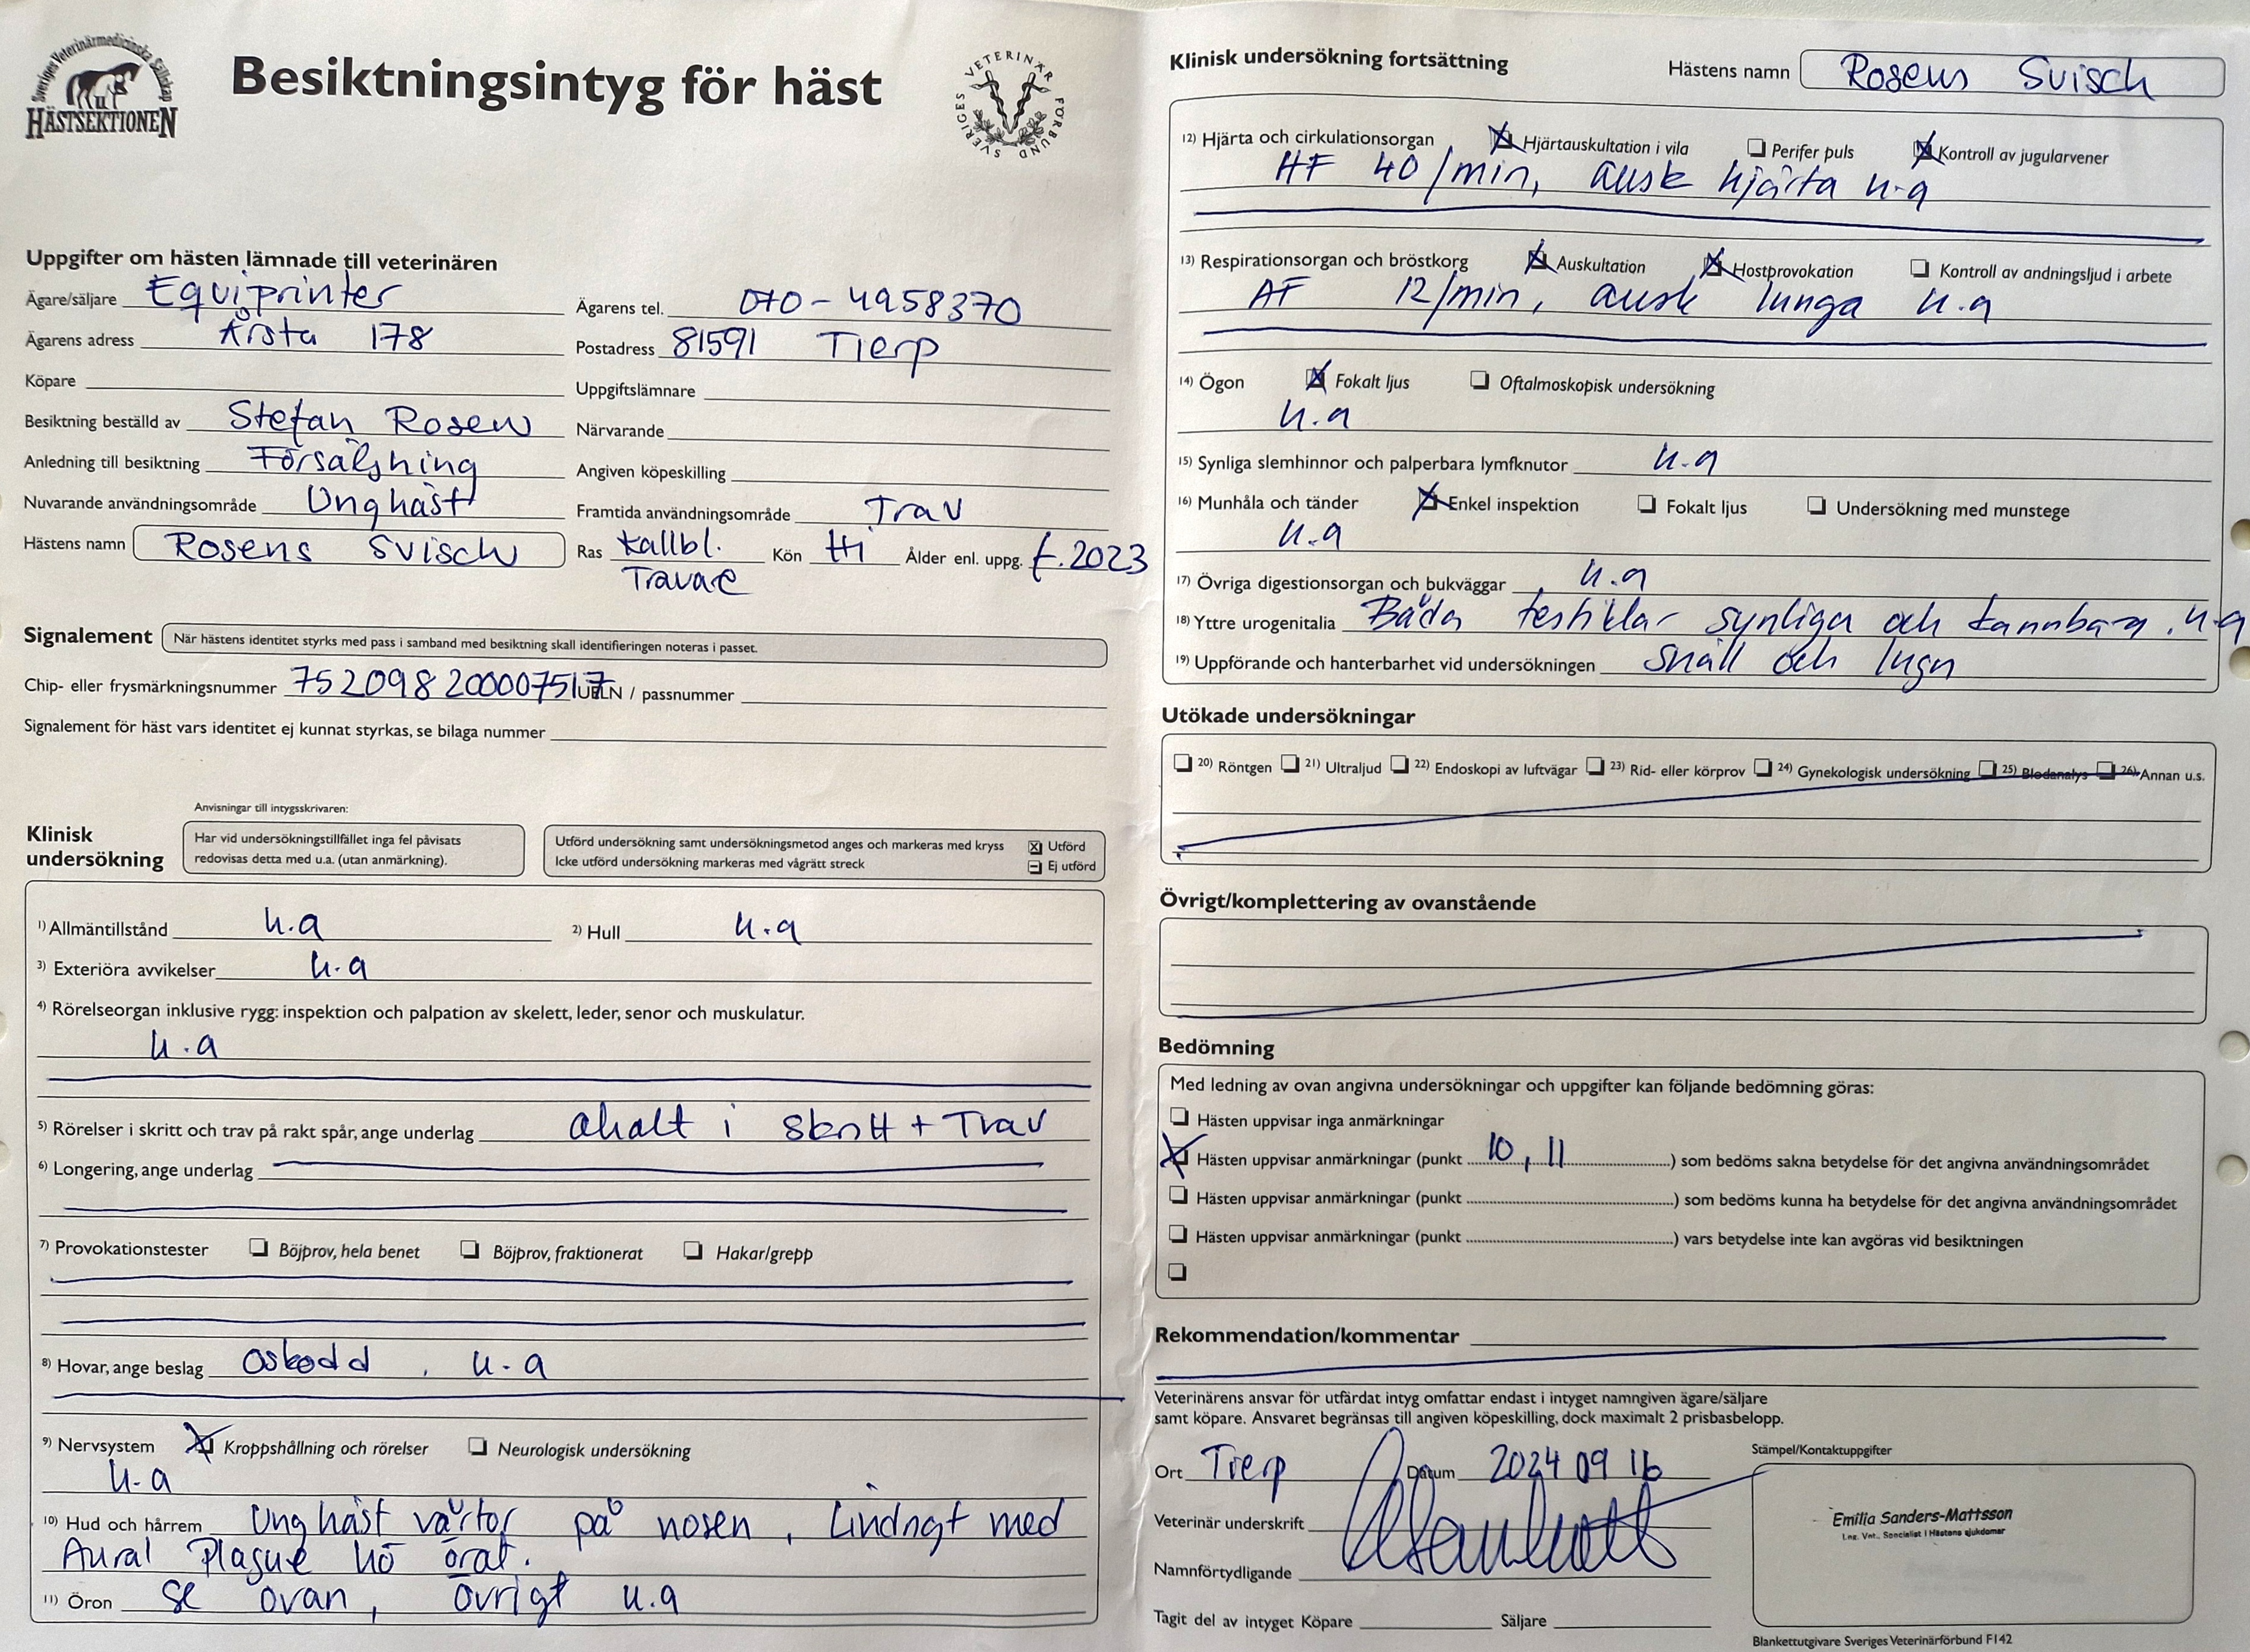 Sveriges Veterinärmedicinska Sällskap
HÄSTSEKTIONEN
Besiktningsintyg för häst
SVERIGES VETERINÄR FÖRBUND
Uppgifter om hästen lämnade till veterinären
Ägare/säljare Equiprinter Ägarens tel. 070-4958370
Ägarens adress Årsta 178 Postadress 81591 Tierp
Köpare Uppgiftslämnare
Besiktning beställd av Stefan Rosen Närvarande
Anledning till besiktning Försäljning Angiven köpeskilling
Nuvarande användningsområde Unghäst Framtida användningsområde Trav
Hästens namn Rosens Svisch Ras Kallbl. Kön Hi Ålder enl. uppg. f.2023
Travare
Signalement När hästens identitet styrks med pass i samband med besiktning skall identifieringen noteras i passet.
Chip- eller frysmärkningsnummer 752098200007517 UELN / passnummer
Signalement för häst vars identitet ej kunnat styrkas, se bilaga nummer
Anvisningar till intygsskrivaren:
Klinisk undersökning
Har vid undersökningstillfället inga fel påvisats
redovisas detta med u.a. (utan anmärkning).
Utförd undersökning samt undersökningsmetod anges och markeras med kryss Utförd
Icke utförd undersökning markeras med vågrätt streck Ej utförd
1) Allmäntillstånd u.a 2) Hull u.a
3) Exteriöra avvikelser u.a
4) Rörelseorgan inklusive rygg: inspektion och palpation av skelett, leder, senor och muskulatur.
u.a
5) Rörelser i skritt och trav på rakt spår, ange underlag ohalt i skritt + Trav
6) Longering, ange underlag
7) Provokationstester Böjprov, hela benet Böjprov, fraktionerat Hakar/grepp
8) Hovar, ange beslag oskodd, u.a
9) Nervsystem Kroppshållning och rörelser Neurologisk undersökning
u.a
10) Hud och hårrem Unghäst vårtor på nosen, Lindrigt med
Aural Plaque hö örat.
11) Öron se ovan, övrigt u.a
Klinisk undersökning fortsättning Hästens namn Rosens Svisch
12) Hjärta och cirkulationsorgan Hjärtauskultation i vila Perifer puls Kontroll av jugularvener
HF 40/min, ausk hjärta u.a
13) Respirationsorgan och bröstkorg Auskultation Hostprovokation Kontroll av andningsljud i arbete
AF 12/min, ausk lunga u.a
14) Ögon Fokalt ljus Oftalmoskopisk undersökning
u.a
15) Synliga slemhinnor och palperbara lymfknutor u.a
16) Munhåla och tänder Enkel inspektion Fokalt ljus Undersökning med munstege
u.a
17) Övriga digestionsorgan och bukväggar u.a
18) Yttre urogenitalia Båda testiklar synliga och kännbara. u.a
19) Uppförande och hanterbarhet vid undersökningen snäll och lugn
Utökade undersökningar
20) Röntgen 21) Ultraljud 22) Endoskopi av luftvägar 23) Rid- eller körprov 24) Gynekologisk undersökning 25) Blodanalys 26) Annan u.s.
Övrigt/komplettering av ovanstående
Bedömning
Med ledning av ovan angivna undersökningar och uppgifter kan följande bedömning göras:
Hästen uppvisar inga anmärkningar
Hästen uppvisar anmärkningar (punkt 10, 11) som bedöms sakna betydelse för det angivna användningsområdet
Hästen uppvisar anmärkningar (punkt ) som bedöms kunna ha betydelse för det angivna användningsområdet
Hästen uppvisar anmärkningar (punkt ) vars betydelse inte kan avgöras vid besiktningen
Rekommendation/kommentar
Veterinärens ansvar för utfärdat intyg omfattar endast i intyget namngiven ägare/säljare
samt köpare. Ansvaret begränsas till angiven köpeskilling, dock maximalt 2 prisbasbelopp.
Ort Tierp Datum 2024 09 16
Stämpel/Kontaktuppgifter
Veterinär underskrift
Emilia Sanders-Mattsson
Leg. Vet., Specialist i Hästens sjukdomar
Namnförtydligande
Tagit del av intyget Köpare Säljare
Blankettutgivare Sveriges Veterinärförbund F142